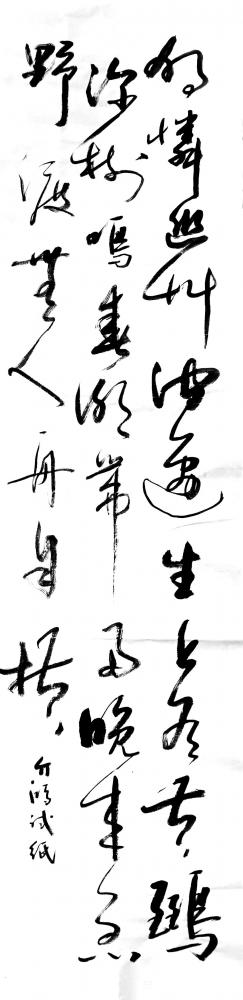 獨憐幽艸澗邊生上有黃鸝
深樹鳴春潮帶雨晚來急
野渡無人舟自橫
試紙